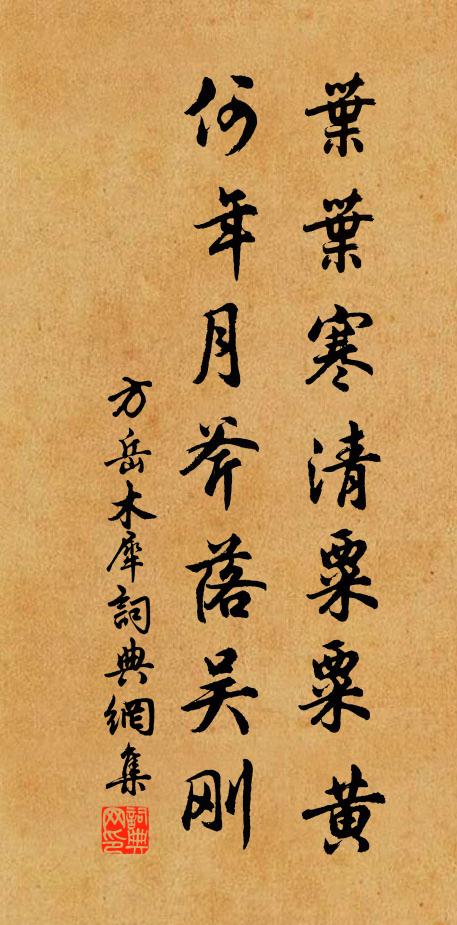 葉葉寒清粟粟黃
何年月斧落吴刚
方岳木犀詞典網集
詞典网印